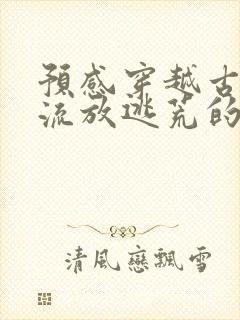 預感穿越古
流放逃荒的
清風戀飄雪